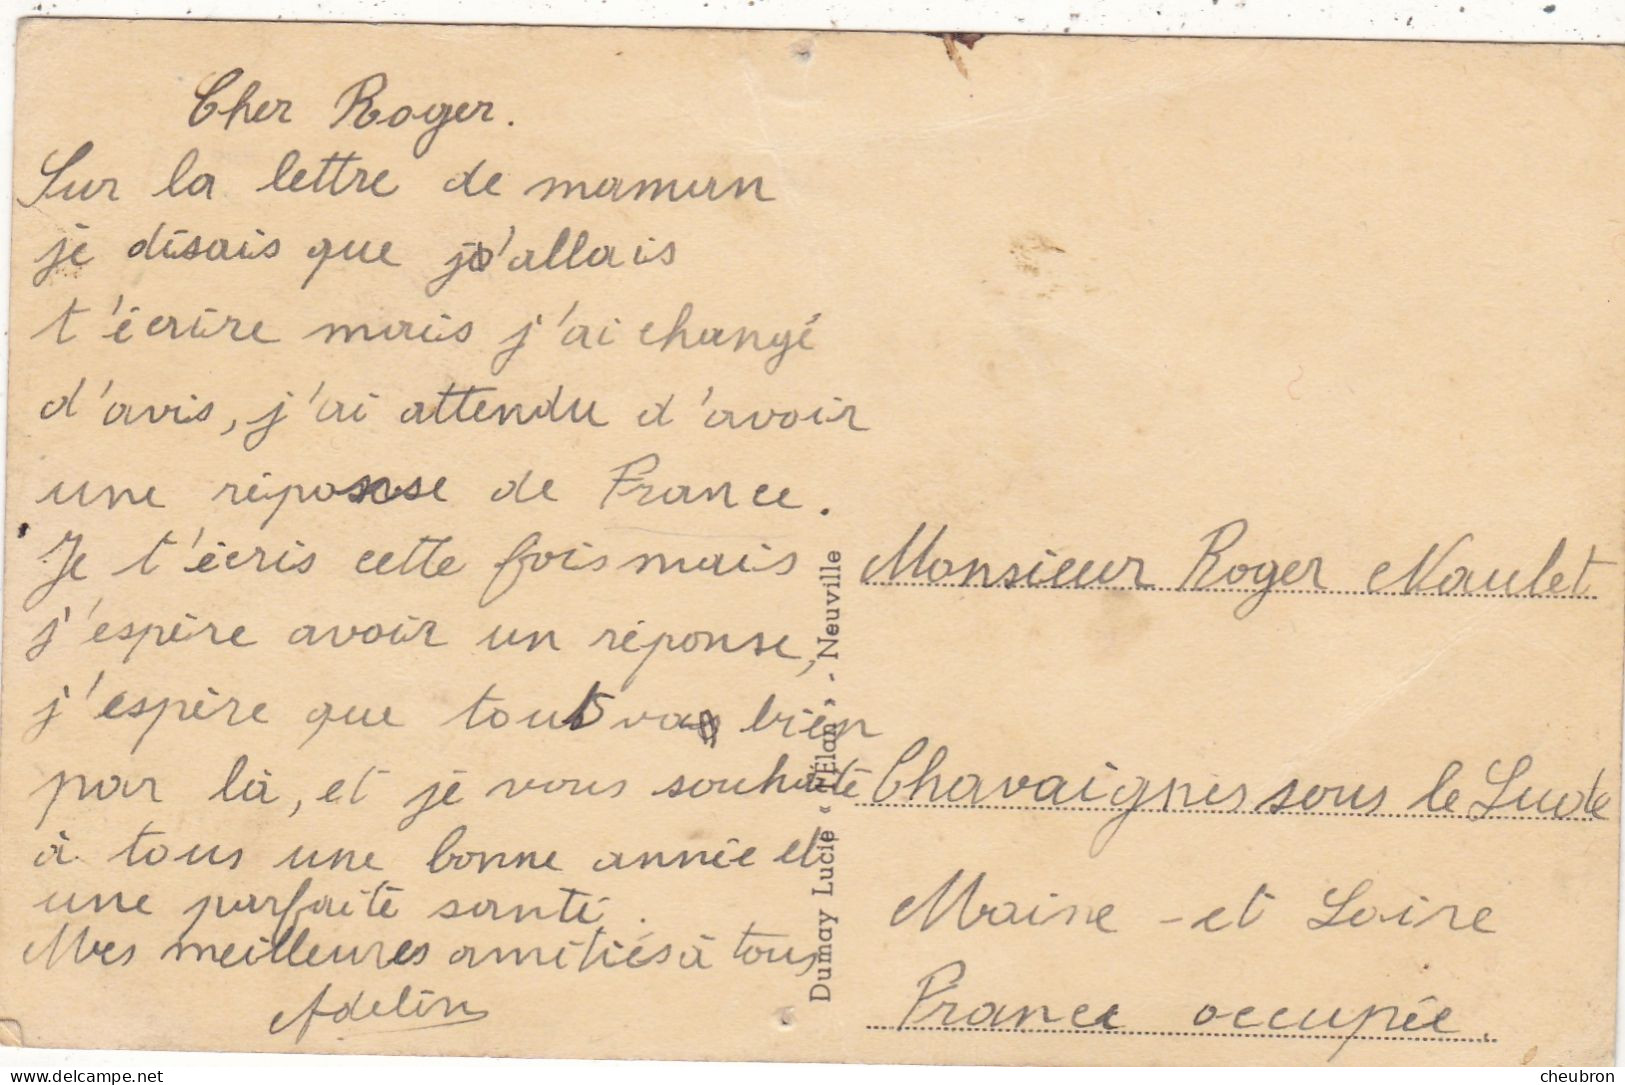 Cher Roger.
Sur la lettre de maman
je disais que j'allais
t'écrire mais j'ai changé
d'avis, j'ai attendu d'avoir
une réponse de France.
Je t'écris cette fois mais
j'espère avoir un réponse,
j'espère que tout va bien
par là, et je vous souhaite
à tous une bonne année et
une parfaite santé.
Mes meilleures amitiés à tous
Adelin
Dumay Lucie « l'Elan » - Neuville
Monsieur Roger Naulet
Chavaignes sous le Lude
Maine-et Loire
France occupée.
www.delcampe.net
cheubron